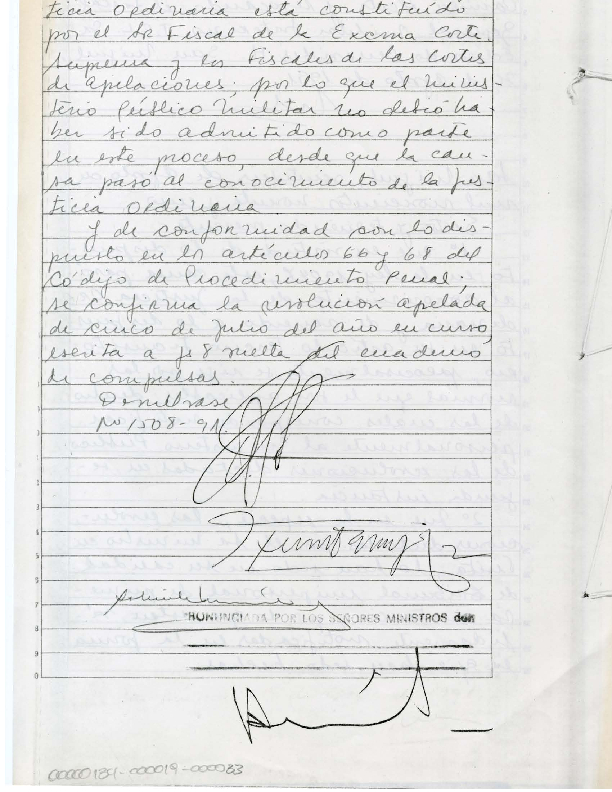 ticia Ordinaria está constituído
por el Sr Fiscal de la Excma Corte
Suprema y los Fiscales de las Cortes
de apelaciones; por lo que el minis-
terio Público Militar no debió ha-
ber sido admitido como parte
en este proceso, desde que la cau-
sa pasó al conocimiento de la Jus-
ticia Ordinaria
Y de conformidad con lo dis-
puesto en los artículos 66 y 68 del
Código de Procedimiento Penal;
se confirma la resolución apelada
de cinco de Julio del año en curso,
escrita a fs 8 vuelta del cuaderno
de compulsas.
Devuélvase
No 1508-91.
PRONUNCIADA POR LOS SEÑORES MINISTROS don
00000184-000019-000033